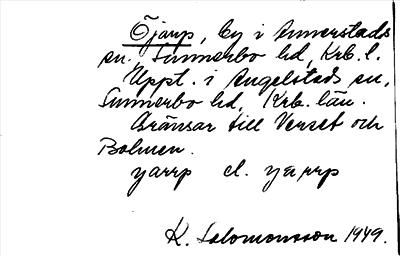 Öjarp, by i Annerstads
sn., Sunnerbo hd, Krb. l.
Uppt. i Angelstads sn,
Sunnerbo hd, Krb. län.
Gränsar till Verset och
Bolmen.
yarrp el. yærrp
K. Salomonsson 1949.